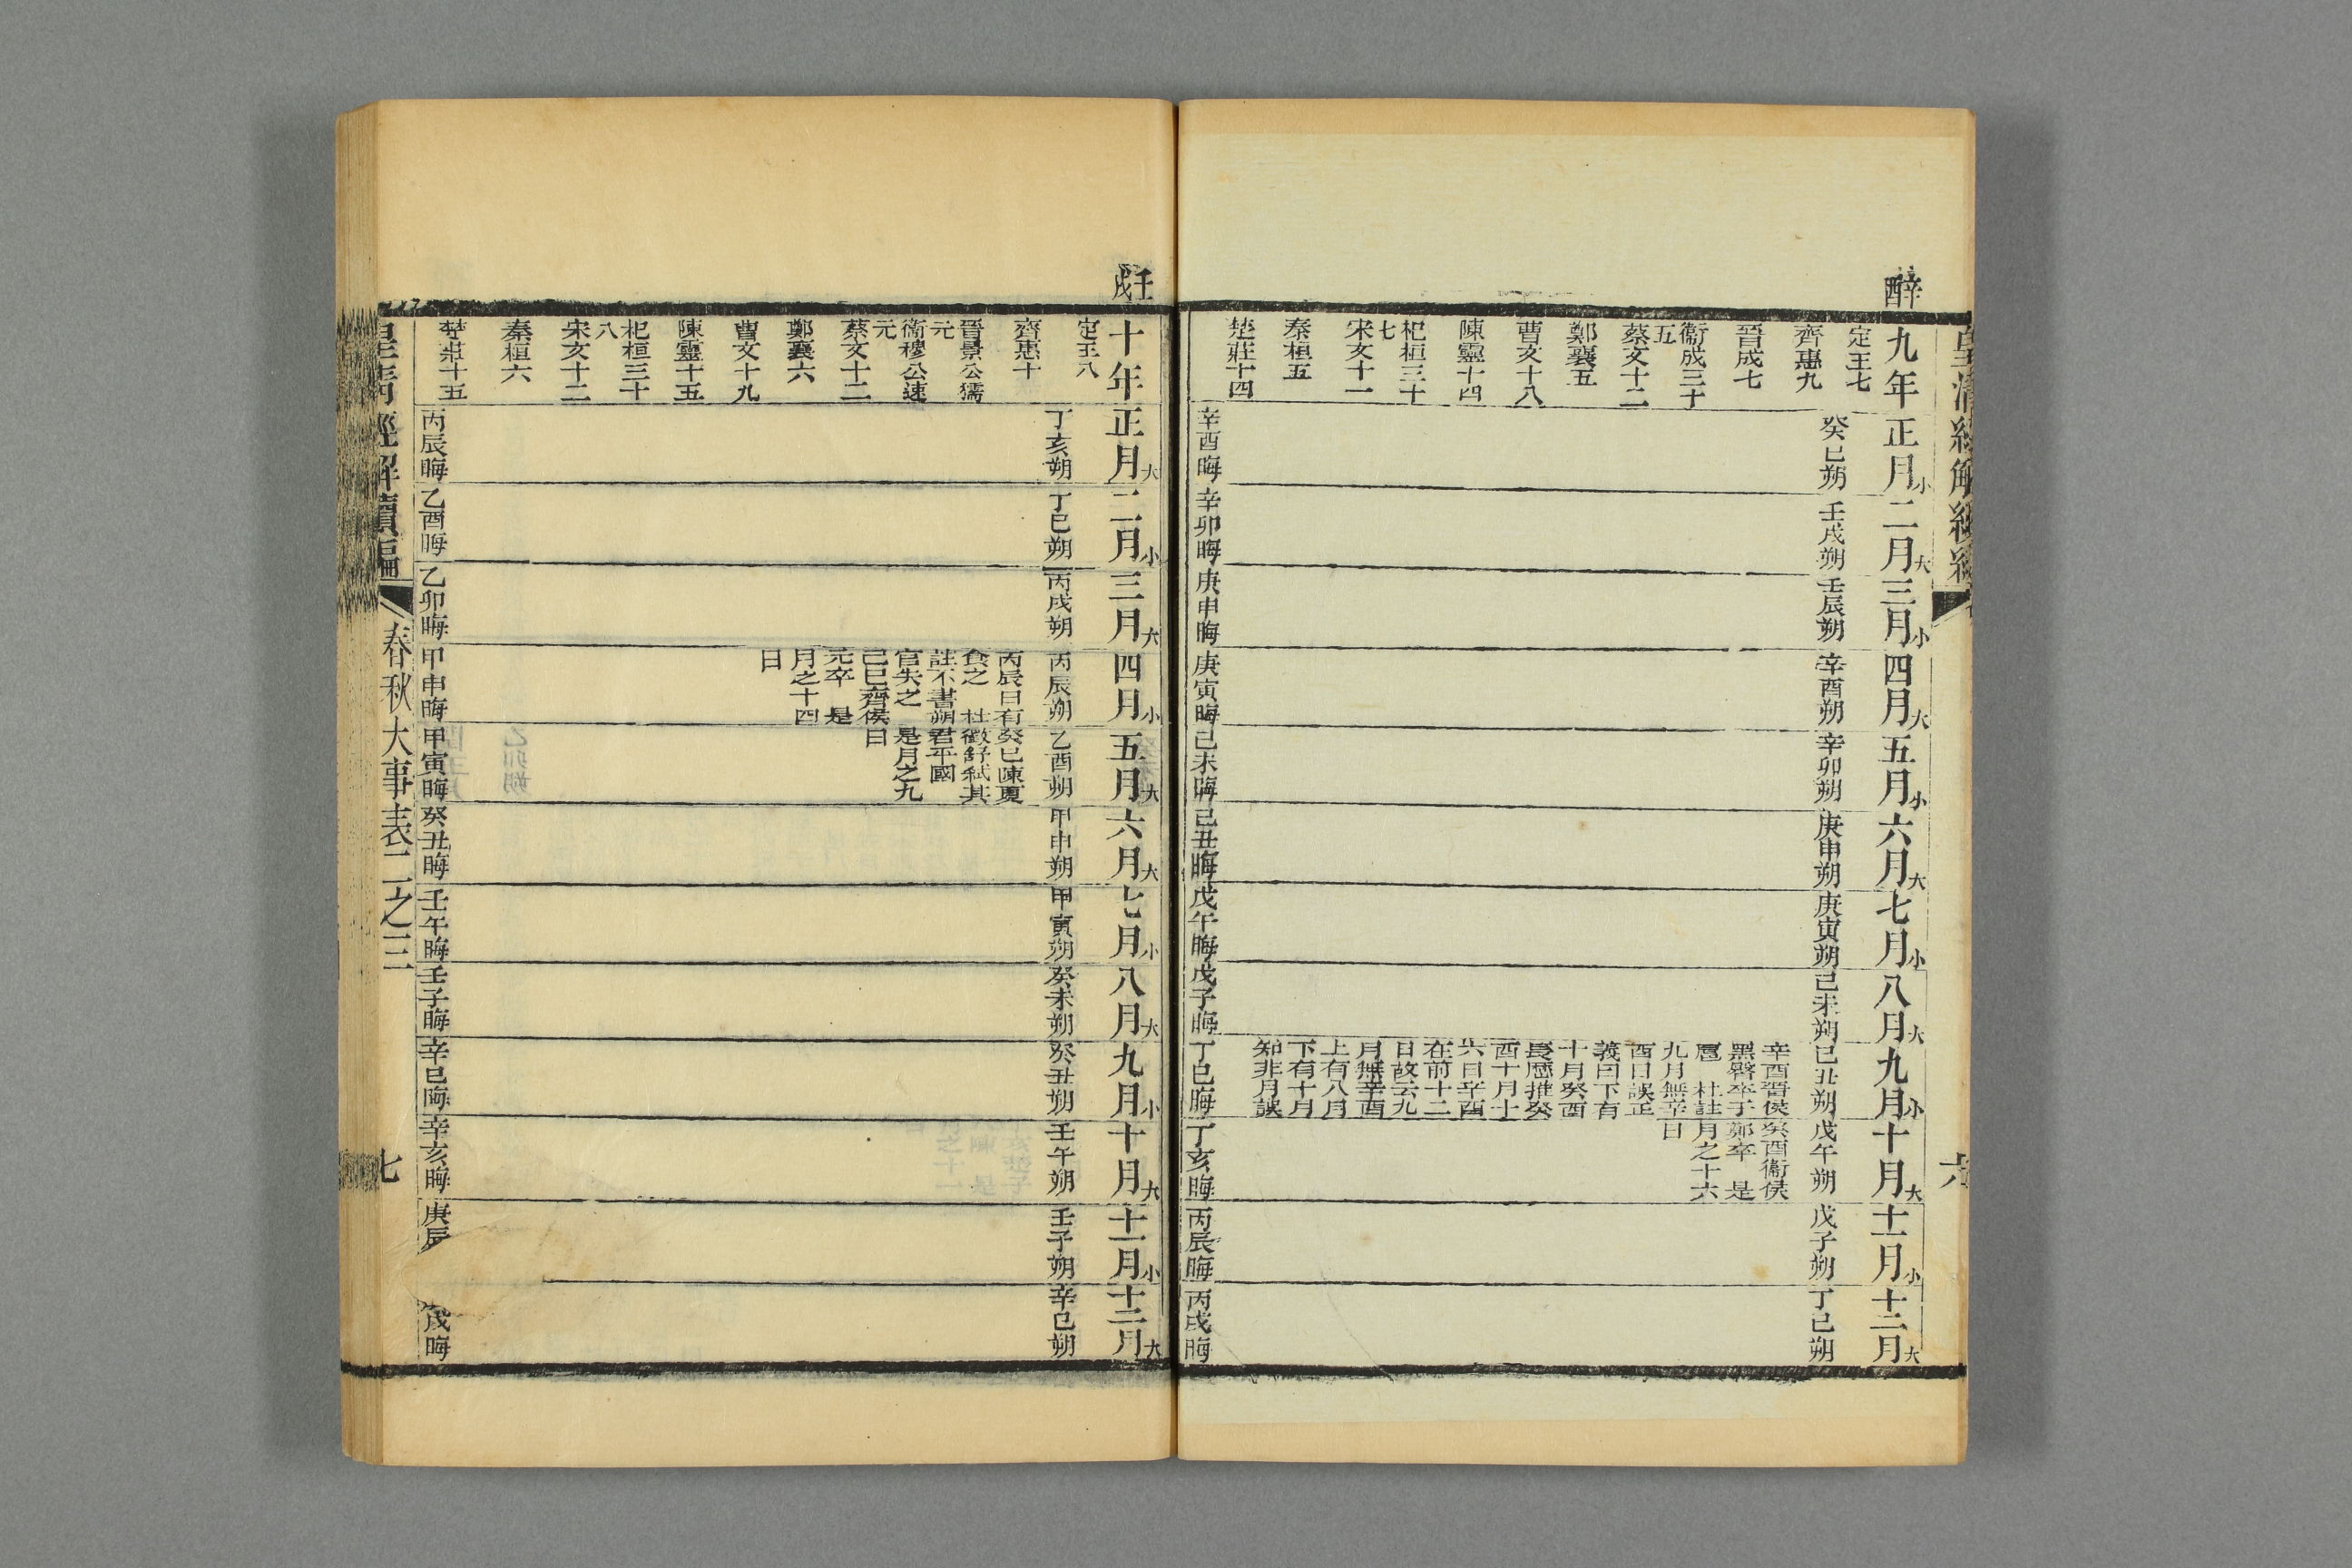 皇清經解續編
六
辛酉
九年 正月小 二月大 三月小 四月大 五月小 六月大 七月小 八月大 九月小 十月大 十一月小 十二月大
定王七
齊惠九
晉成七
衞成三十
五
蔡文十二
鄭襄五
曹文十八
陳靈十四
杞桓三十
七
宋文十一
秦桓五
楚莊十四
癸巳朔 壬戌朔 壬辰朔 辛酉朔 辛卯朔 庚申朔 庚寅朔 己未朔 己丑朔 戊午朔 戊子朔 丁巳朔
辛酉晉侯
黑臀卒于
扈 杜註
九月無辛
酉日誤正
義曰下有
十月癸酉
長歷推癸
酉十月十
六日辛酉
在前十二
日故云九
月無辛酉
上有八月
下有十月
知非月誤
癸酉衞侯
鄭卒 是
月之十六
日
辛酉晦 辛卯晦 庚申晦 庚寅晦 己未晦 己丑晦 戊午晦 戊子晦 丁巳晦 丁亥晦 丙辰晦 丙戌晦
壬戌
十年 正月大 二月小 三月大 四月小 五月大 六月大 七月小 八月大 九月小 十月大 十一月小 十二月大
定王八
齊惠十
晉景公獳
元
衞穆公速
元
蔡文十二
鄭襄六
曹文十九
陳靈十五
杞桓三十
八
宋文十二
秦桓六
楚莊十五
丁亥朔 丁巳朔 丙戌朔 丙辰朔 乙酉朔 甲申朔 甲寅朔 癸未朔 癸丑朔 壬午朔 壬子朔 辛巳朔
丙辰日有
食之 杜
註不書朔
官失之
己巳齊侯
元卒 是
月之十四
日
癸巳陳夏
徵舒弒其
君平國
是月之九
日
丙辰晦 乙酉晦 乙卯晦 甲申晦 甲寅晦 癸丑晦 壬午晦 壬子晦 辛巳晦 辛亥晦 庚辰 戌晦
皇清經解續編
春秋大事表二之三
七